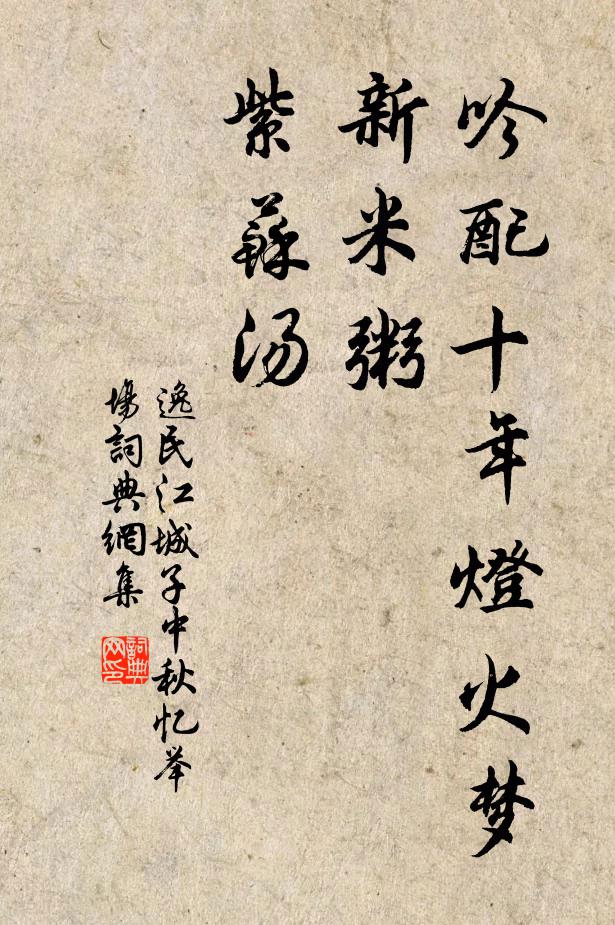 吟配十年燈火梦
新米粥
紫蘇汤
逸民江城子中秋忆举
場詞典網集
詞典
网印